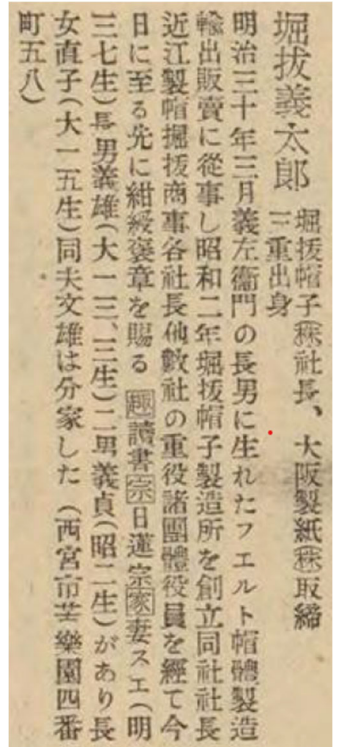 堀拔義太郎
堀拔帽子㈱社長、大阪製紙㈱取締
三重出身
明治三十年三月義左衞門の長男に生れたフエルト帽體製造
輸出販賣に從事し昭和二年堀拔帽子製造所を創立同社社長
近江製帽堀拔商事各社長他數社の重役諸團體役員を經て今
日に至る先に紺綬褒章を賜る 趣讀書宗日蓮宗家妻スエ(明
三七生)長男義雄(大一三、三生)二男義貞(昭二生)があり長
女直子(大一五生)同夫文雄は分家した(西宮市苦樂園四番
町五八)